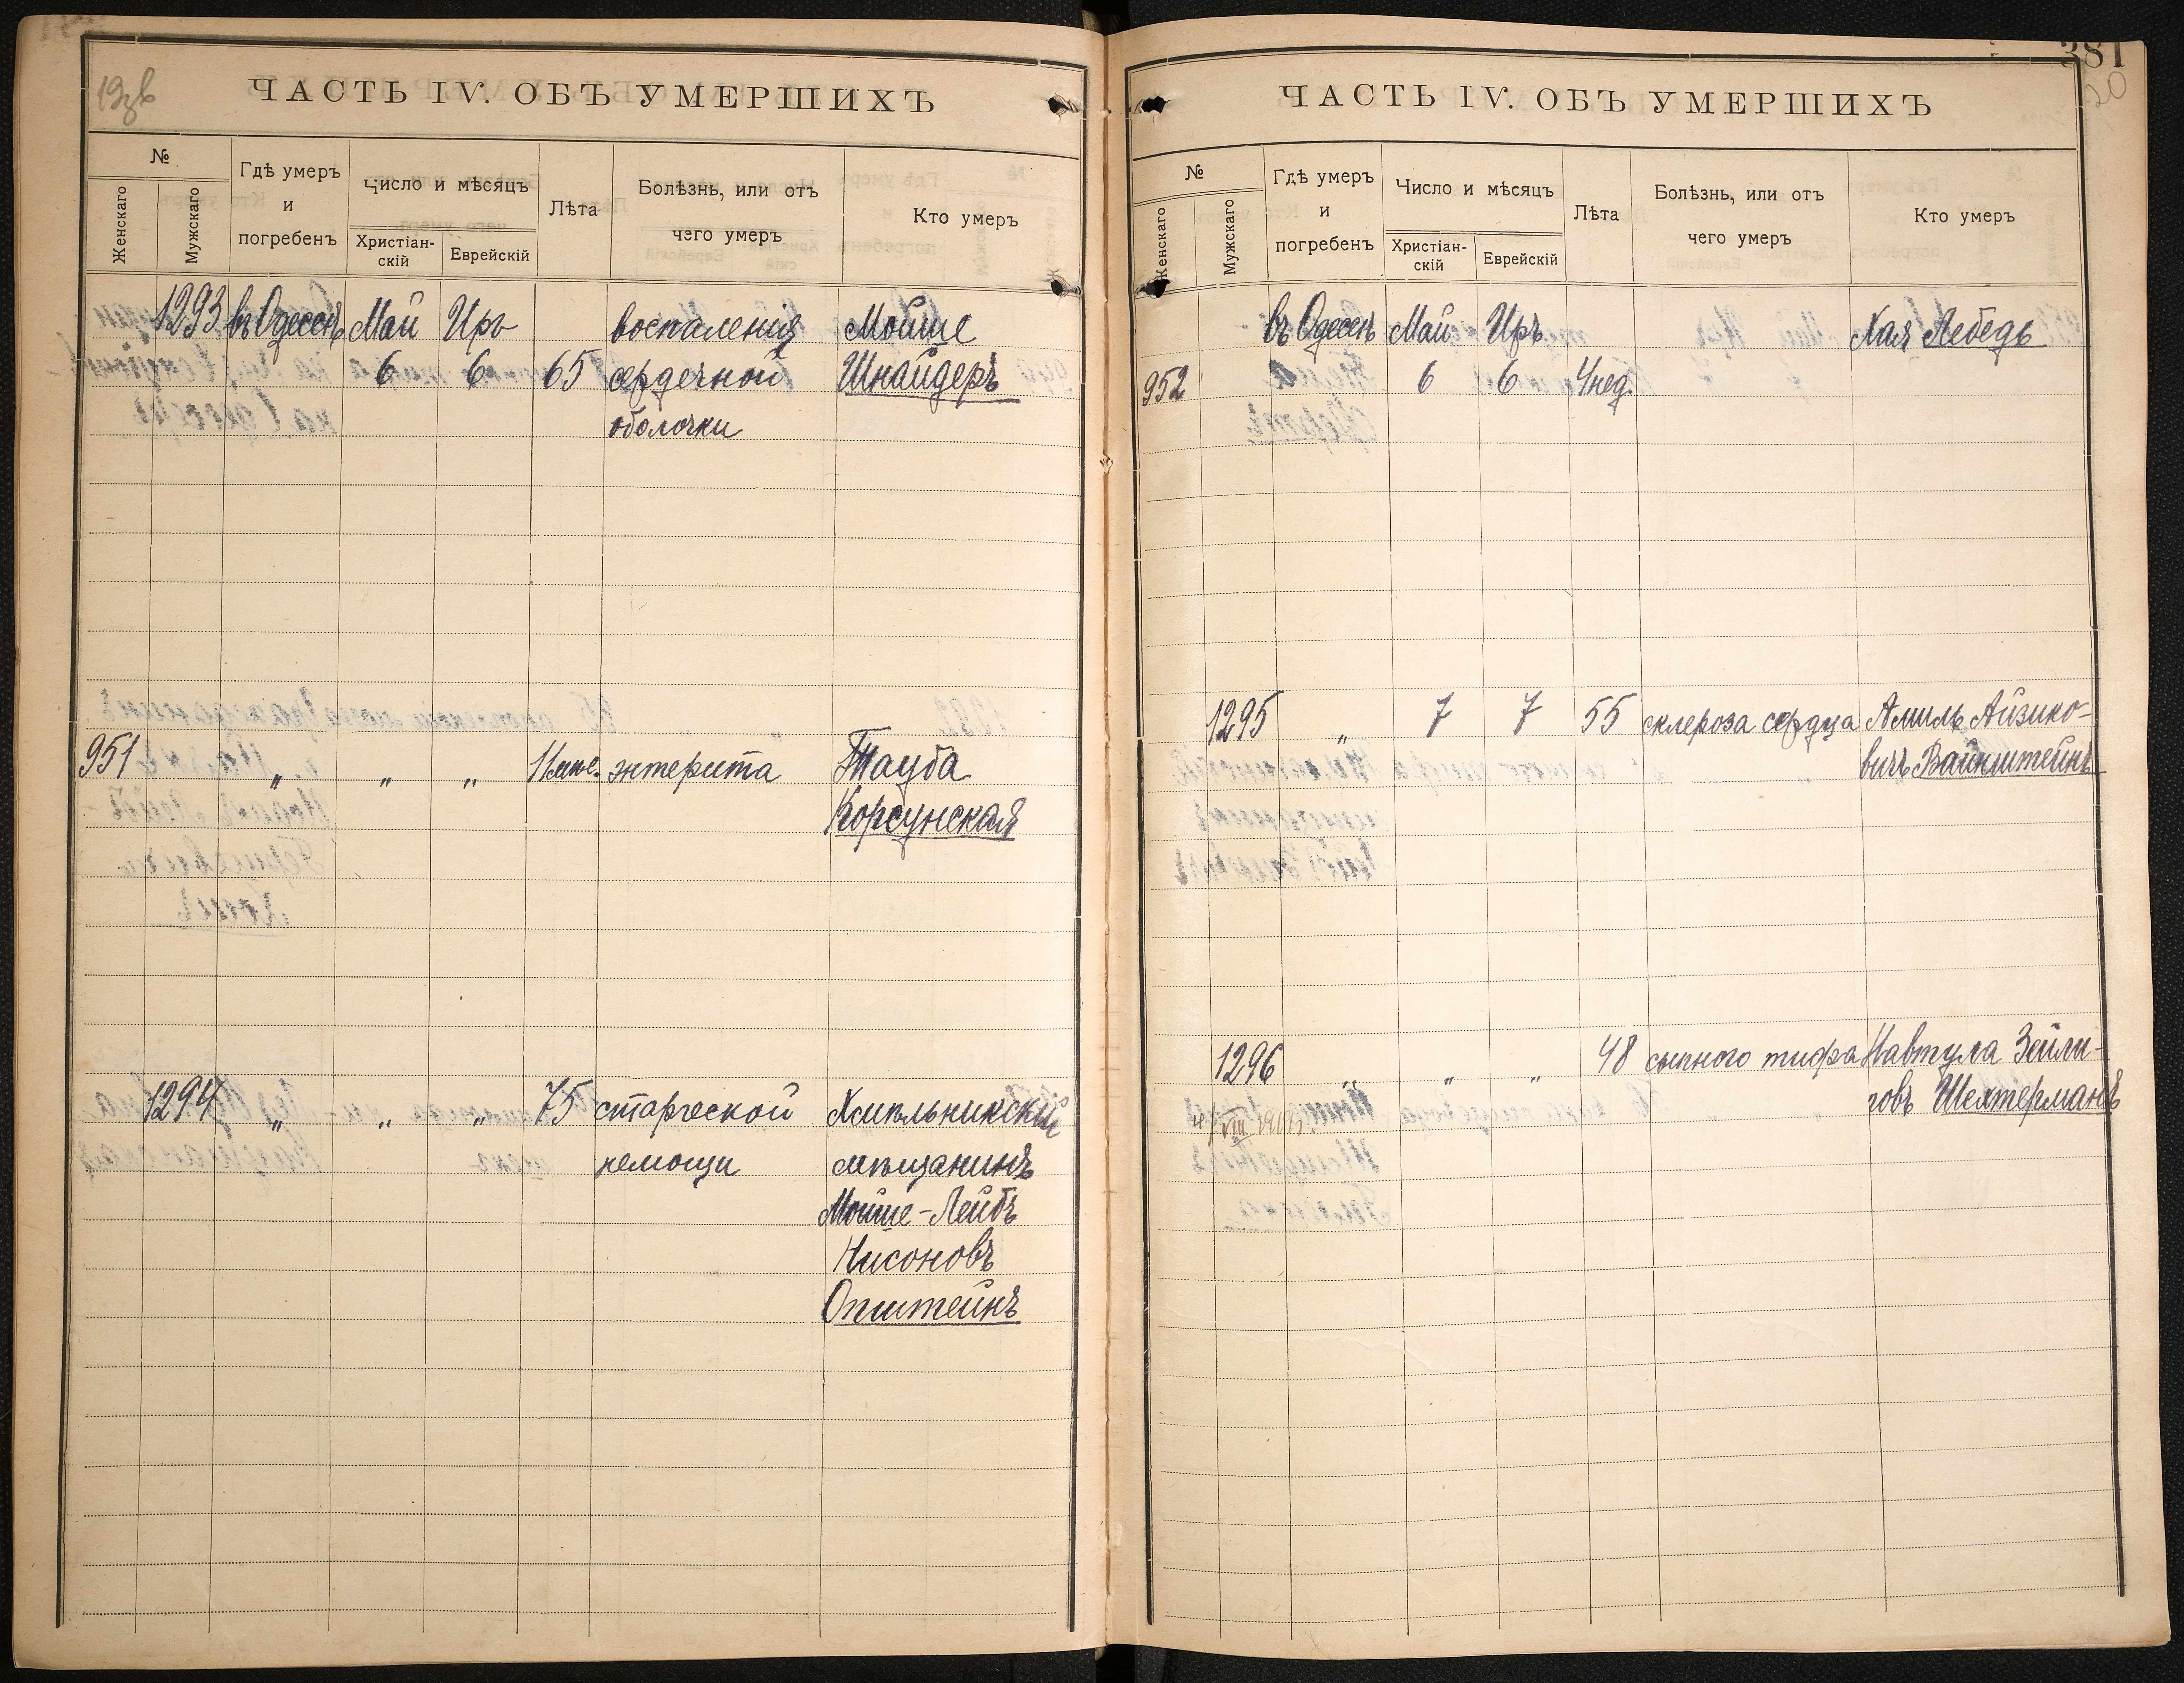 ЧАСТЬ IV. ОБЪ УМЕРШИХЪ
№
Женскаго
Мужскаго
Гдѣ умеръ
и
погребенъ
Число и мѣсяцъ
Христіан-
скій
Еврейскій
Лѣта
Болѣзнь, или отъ
чего умеръ
Кто умеръ
1293 въ Одессѣ Май Иръ воспаления Мойше
6 6 65 сердечной Шнайдеръ
оболочки
951 " " " 11 мѣс. энтерита Тауба
Корсунская
1294 " " " 75 старческой Хмѣльникский
немощи мѣщанинъ
Мойше-Лейбъ
Нисоновъ
Општейнъ
381
20
ЧАСТЬ IV. ОБЪ УМЕРШИХЪ
№
Женскаго
Мужскаго
Гдѣ умеръ
и
погребенъ
Число и мѣсяцъ
Христіан-
скій
Еврейскій
Лѣта
Болѣзнь, или отъ
чего умеръ
Кто умеръ
въ Одессѣ Май Иръ Хая Лебедь
952 6 6 4 нед.
1295 " 7 7 55 склероза сердца Амиль Айзико-
вичъ Вайнштейнъ
1296 " " " 48 сыпного тифа Навтула Зейли-
говъ Шехтерманъ